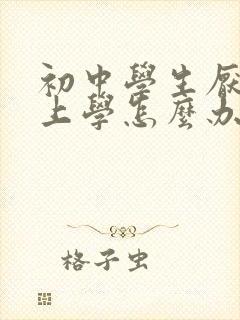 初中學生厭
上學怎麼办
格子虫